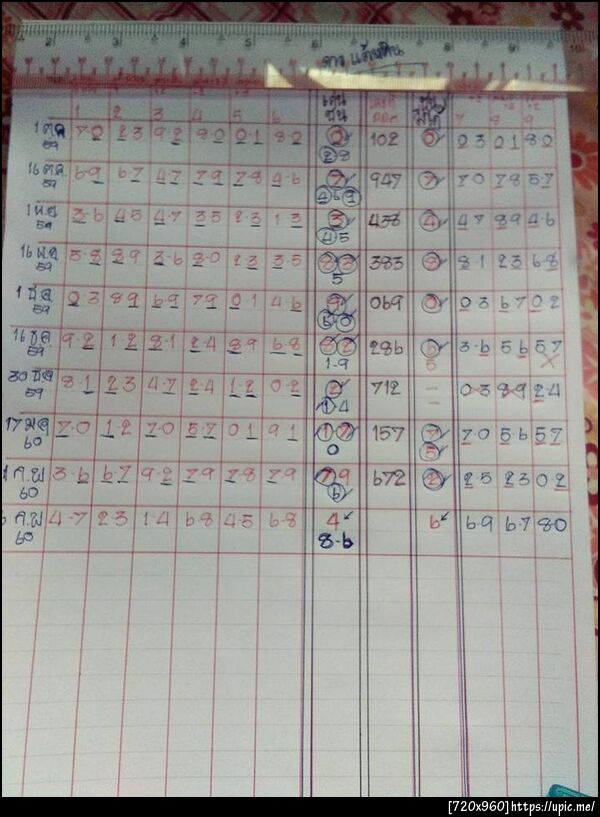 2 3 4 5 6 7 8 9 10
ดาว แต้มดิน
1 2 3 4 5 6 เด่น ชน 7 8 9
1 ตค 59 7-0 2-3 9-2 8-0 0-1 8-0 0 102 0 0-3 0-1 8-0
2 8
16 ตค 59 6-9 6-7 4-7 7-9 7-8 4-6 7 947 7 7-0 7-8 5-7
4 6 9
1 พย 59 3-6 4-5 4-7 3-5 2-3 1-3 3 438 4 4-7 8-9 4-6
4 5
16 พย 59 5-8 8-9 3-6 8-0 2-3 3-5 8 3 383 8-1 2-3 6-8
5
1 ธค 59 0-3 8-9 6-9 7-9 0-1 4-6 9 069 0 0-3 6-7 0-2
6 0
16 ธค 59 9-2 1-2 8-1 2-4 8-9 6-8 8 2 286 3-6 5-6 5-7
1-9 5 X
30 ธค 59 8-1 2-3 4-7 2-4 1-2 0-2 2 712 - 0-3 8-9 2-4
1 4 -
17 มค 60 7-0 1-2 7-0 5-7 0-1 9-1 1 7 157 7 7-0 5-6 5-7
0 5
1 ก.พ 60 3-6 6-7 9-2 7-9 7-8 7-9 7 9 672 2 2-5 2-3 0-2
6
ก.พ 60 4-7 2-3 1-4 6-8 4-5 6-8 4 6 6-9 6-7 8-0
8-6
[720x960]https://upic.me/